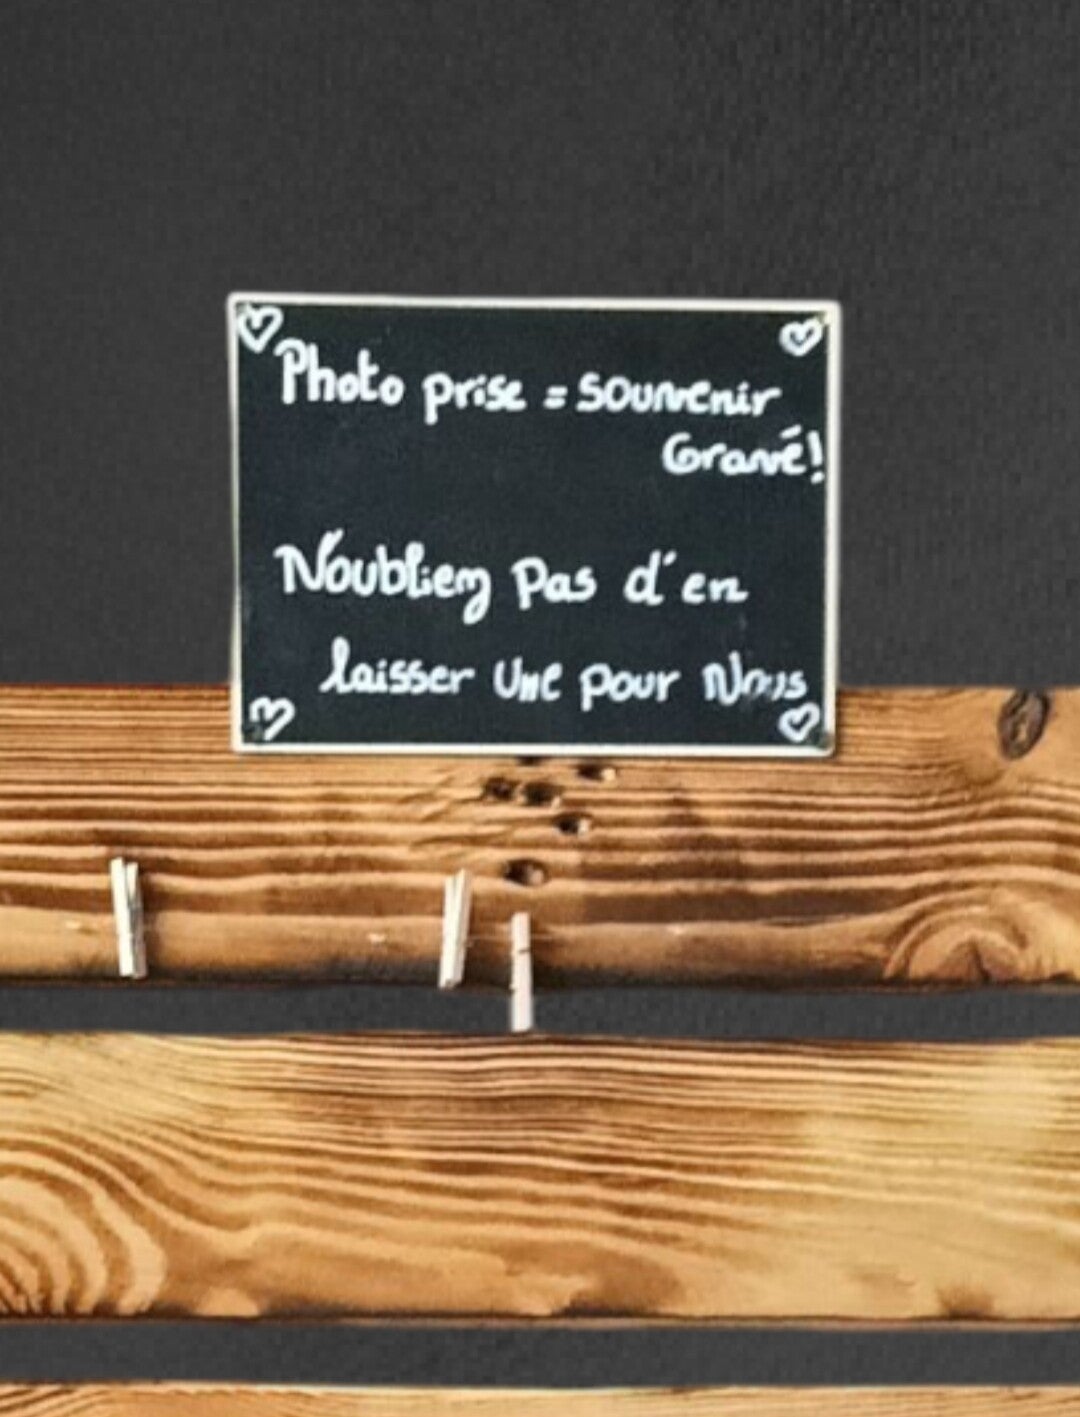 Photo prise = souvenir
Gravé!
N'oubliez pas d'en
laisser une pour Nous